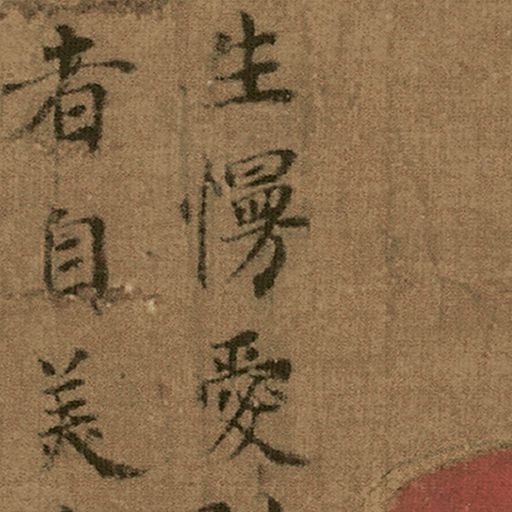 生慢愛
者自美